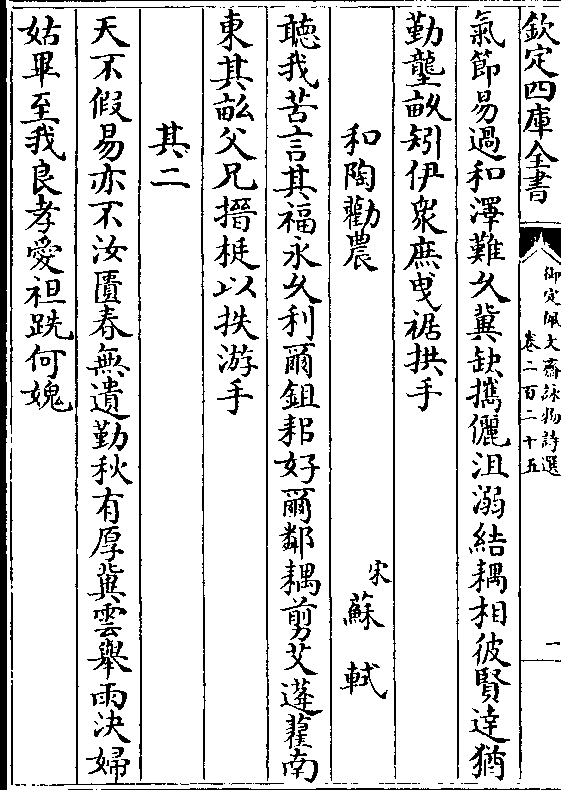 欽定四庫全書
御定佩文齋詠物詩選
卷二百二十五
一
氣節易過和澤難久冀缺攜儷沮溺結耦相彼賢達猶
勤壟畝矧伊衆庶曵裾拱手
和陶勸農
宋
蘇軾
聴我苦言其福永久利爾鉏耜好爾鄰耦剪艾蓬藋南
東其畝父兄搢梃以抶游手
其二
天不假易亦不汝匱春無遺勤秋有厚冀雲舉雨決婦
姑畢至我良孝愛袒跣何媿